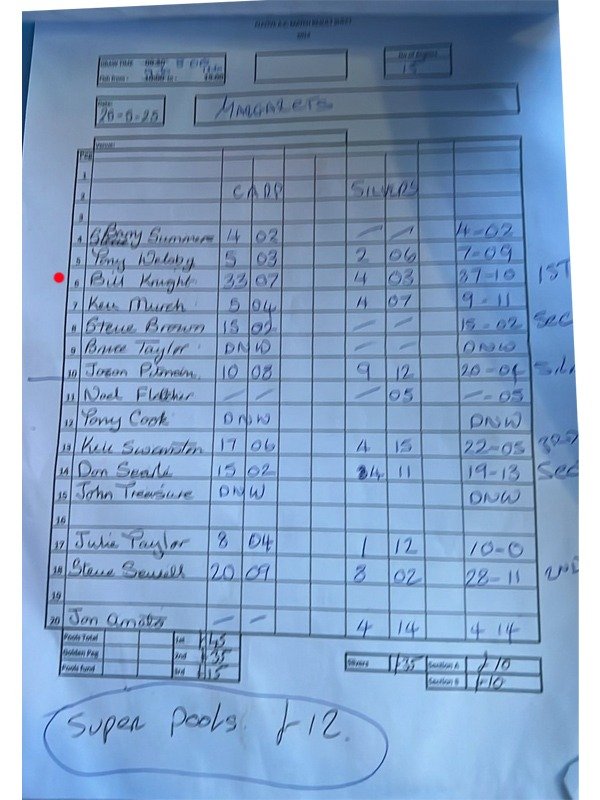 2025
DRAW TIME
Fish from : to :
No of Anglers
15
Date:
26-6-25
MARGARETS
Venue:
Peg
1
2 CARP SILVERS
3
4 Barry Summers 4 02 - - 4-02
5 Tony Welsby 5 03 2 06 7-09
6 Bill Knight 33 07 4 03 37-10 1ST
7 Ken Murch 5 04 4 07 9-11
8 Steve Brown 15 02 - - 15-02 SEC
9 Bruce Taylor DNW DNW
10 Jason Pitman 10 08 9 12 20-04
11 Noel - - - 05 -05
12 Tony Cook DNW DNW
13 Ken Swanston 17 06 4 15 22-05 3RD
14 Don Searle 15 02 4 11 19-13 SEC
15 John Treasure DNW DNW
16
17 Julie Taylor 8 04 1 12 10-0
18 Steve Sewell 20 09 8 02 28-11 2ND
19
20 Jon - - 4 14 4 14
Pools Total 1st £45
Golden Peg 2nd £35 Silvers £35 Section A £10
Pools Fund 3rd £15 Section B £10
Super Pools. £12.